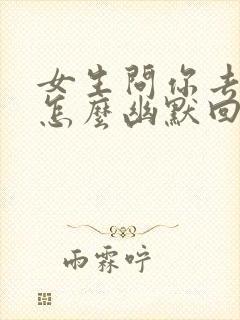 女生問你去
怎麼幽默回
雨霖咛